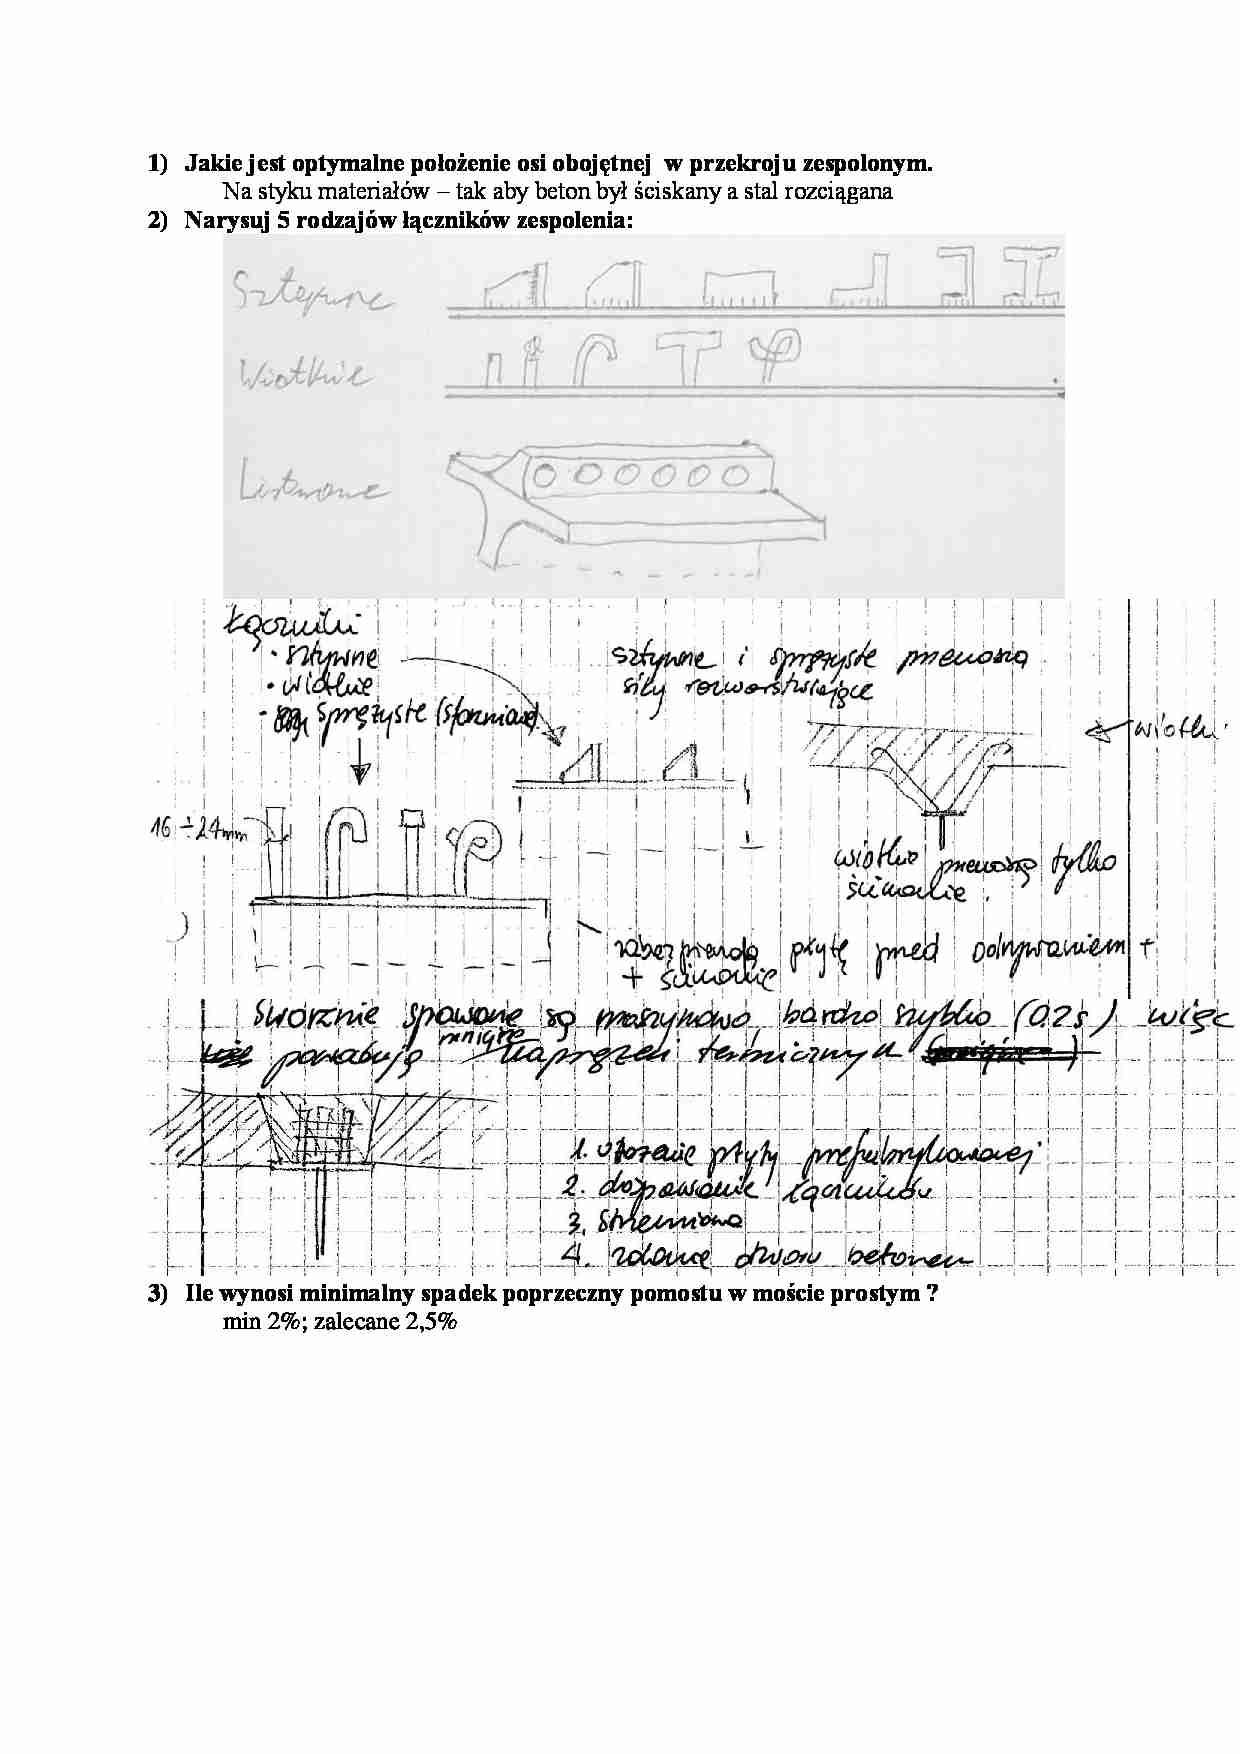 1) Jakie jest optymalne położenie osi obojętnej w przekroju zespolonym.
Na styku materiałów – tak aby beton był ściskany a stal rozciągana
2) Narysuj 5 rodzajów łączników zespolenia:
Sztywne
Wiotkie
Listwowe
Łączniki
• sztywne
• wiotkie
• sprężyste (sforzniowe)
sztywne i sprężyste przenoszą
siły rozwarstwiające
wiotki
16 ÷ 24mm
wiotkie przenoszą tylko
ścinanie.
zabezpieczają płytę przed odrywaniem +
+ ścinanie
Sworznie spawane są maszynowo, bardzo szybko (0.2s) więc
powodują mniejsze naprężeń termicznych
1. Ułożenie płyty prefabrykowanej
2. dospawanie łączników
3. Strzemiona
4. zalanie otworu betonem
3) Ile wynosi minimalny spadek poprzeczny pomostu w moście prostym ?
min 2%; zalecane 2,5%